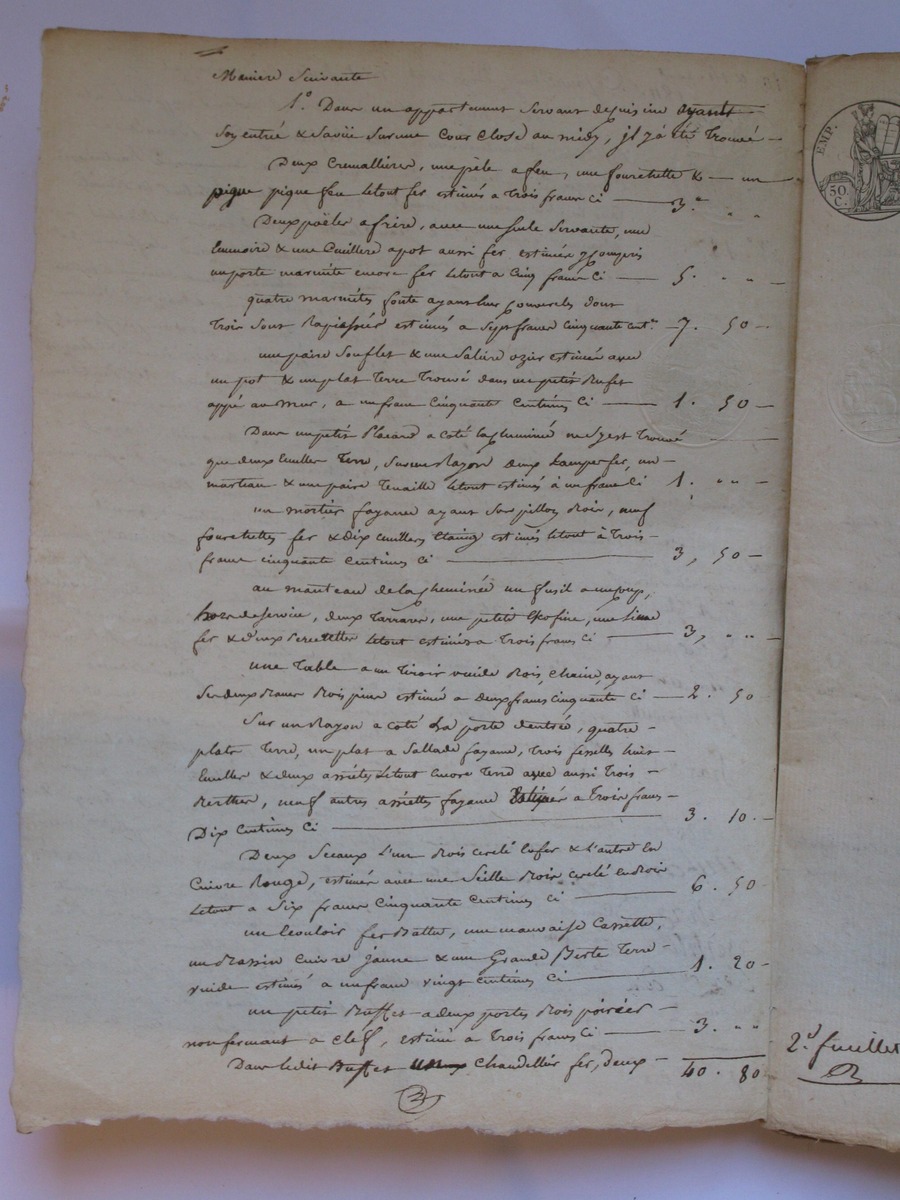 Maniere Suivante
1.° Dans un appartement servant de cuisine ayant
son entrée & Savüe Sur une Cour Close au midy, jl y à été Trouvé —
Deux Cremallieres, une pèle a feu, une fourchette & — un
pique pique feu letout fer estimés a Trois francs Ci — 3. " "
Deux poëler a frire, avec une seule Servante, une
Ecumoire & une Cuilliere a pot aussi fer estimés y compris
un porte marmite encore fer letout a Cinq francs Ci — 5. " "
quatre marmites fonte ayant leur Couvercles dont
Trois Sont Rapiessées estimés a Sept francs Cinquante cent.s — 7. 50 —
une paire Souflet & une Salière ozier estimée avec
un pot & un plat Terre Trouvé dans un petit Bufet
au mur, a un franc Cinquante Centimes Ci — 1. 50 —
Dans un petit Placard a coté la Cheminé ne s'y est Trouvé
que deux Cuiller Terre, Sur un Rayon deux Lampes fer, un —
marteau & une paire Tenaille letout estimés à un franc Ci 1. " " —
un mortier fayance ayant Son pillon Bois, neuf
fourchettes fer & dix cuillers Etaing estimés letout à Trois —
francs cinquante Centimes Ci — 3, 50 —
au manteau de la Cheminée un fusil a un coup,
hors de Service, deux Tarrares, une petite une Lime
fer & deux letout estimés a Trois francs Ci — 3, " " —
une Table a un Tiroir vuide Bois Chaine, ayant
Ses deux Bancs Bois pin estimé a deux francs cinquante Ci — 2. 50
Sur un Rayon a coté la porte d'entrée, quatre —
plats Terre, un plat a Sallade fayance, Trois fesselles huit —
Cuiller & deux assiétes letout Encore Terre avec aussi Trois —
Berthes, neuf autres assiettes fayance Estimés a Trois francs —
Dix Centimes Ci — 3. 10 —
Deux Seceaux l'un Bois cerclé En fer & l'autre En
Cuivre Rouge, estimés avec une Seille Bois cerclé En Bois
letout a Six francs Cinquante Centimes Ci — 6. 50 —
un Ecouloir fer Battu, une mauvaise Cassette,
un Bassin Cuivre jaune & une Grande Berte Terre —
vuide estimés a un franc vingt Centimes Ci — 1. 20 —
un petit Buffet a deux portes Bois poirier —
non fermant a Cléf, estimé a Trois francs Ci — 3. " "
Dans ledit Buffet un Chandellier fer, deux — 40. 80
EMP.
50
C.
2.d feuillet